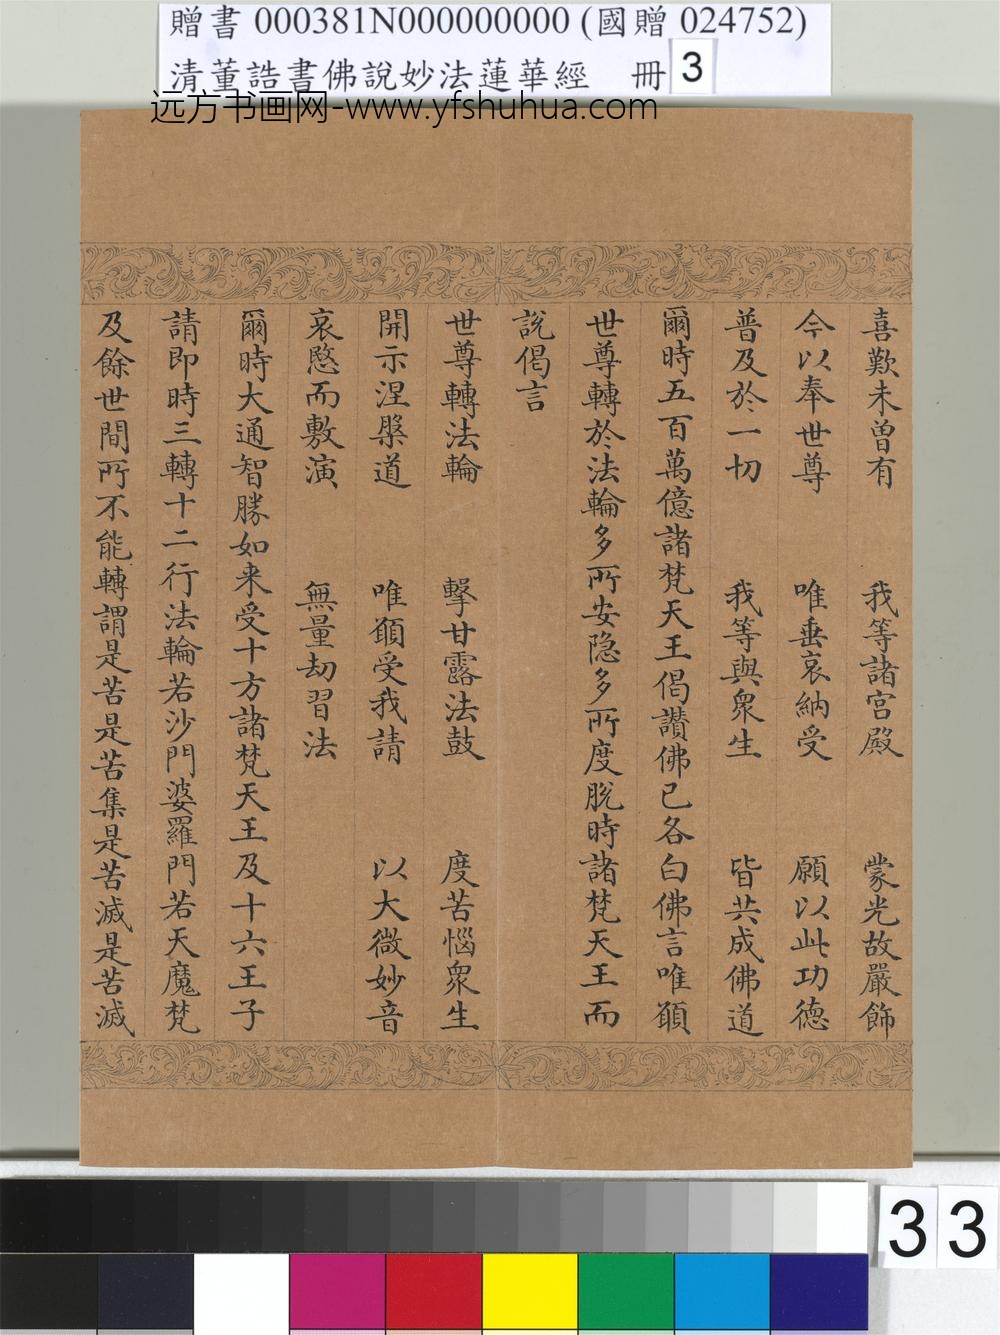 贈書 000381N000000000 (國贈 024752)
清董誥書佛說妙法蓮華經 冊 3
远方书画网-www.yfshuhua.com
喜歎未曾有 我等諸宮殿 蒙光故嚴飾
今以奉世尊 唯垂哀納受 願以此功德
普及於一切 我等與衆生 皆共成佛道
爾時五百萬億諸梵天王偈讚佛已各白佛言唯願
世尊轉於法輪多所安隐多所度脫時諸梵天王而
說偈言
世尊轉法輪 擊甘露法鼓 度苦惱衆生
開示涅槃道 唯願受我請 以大微妙音
哀愍而敷演 無量劫習法
爾時大通智勝如来受十方諸梵天王及十六王子
請即時三轉十二行法輪若沙門婆羅門若天魔梵
及餘世間所不能轉謂是苦是苦集是苦滅是苦滅
33